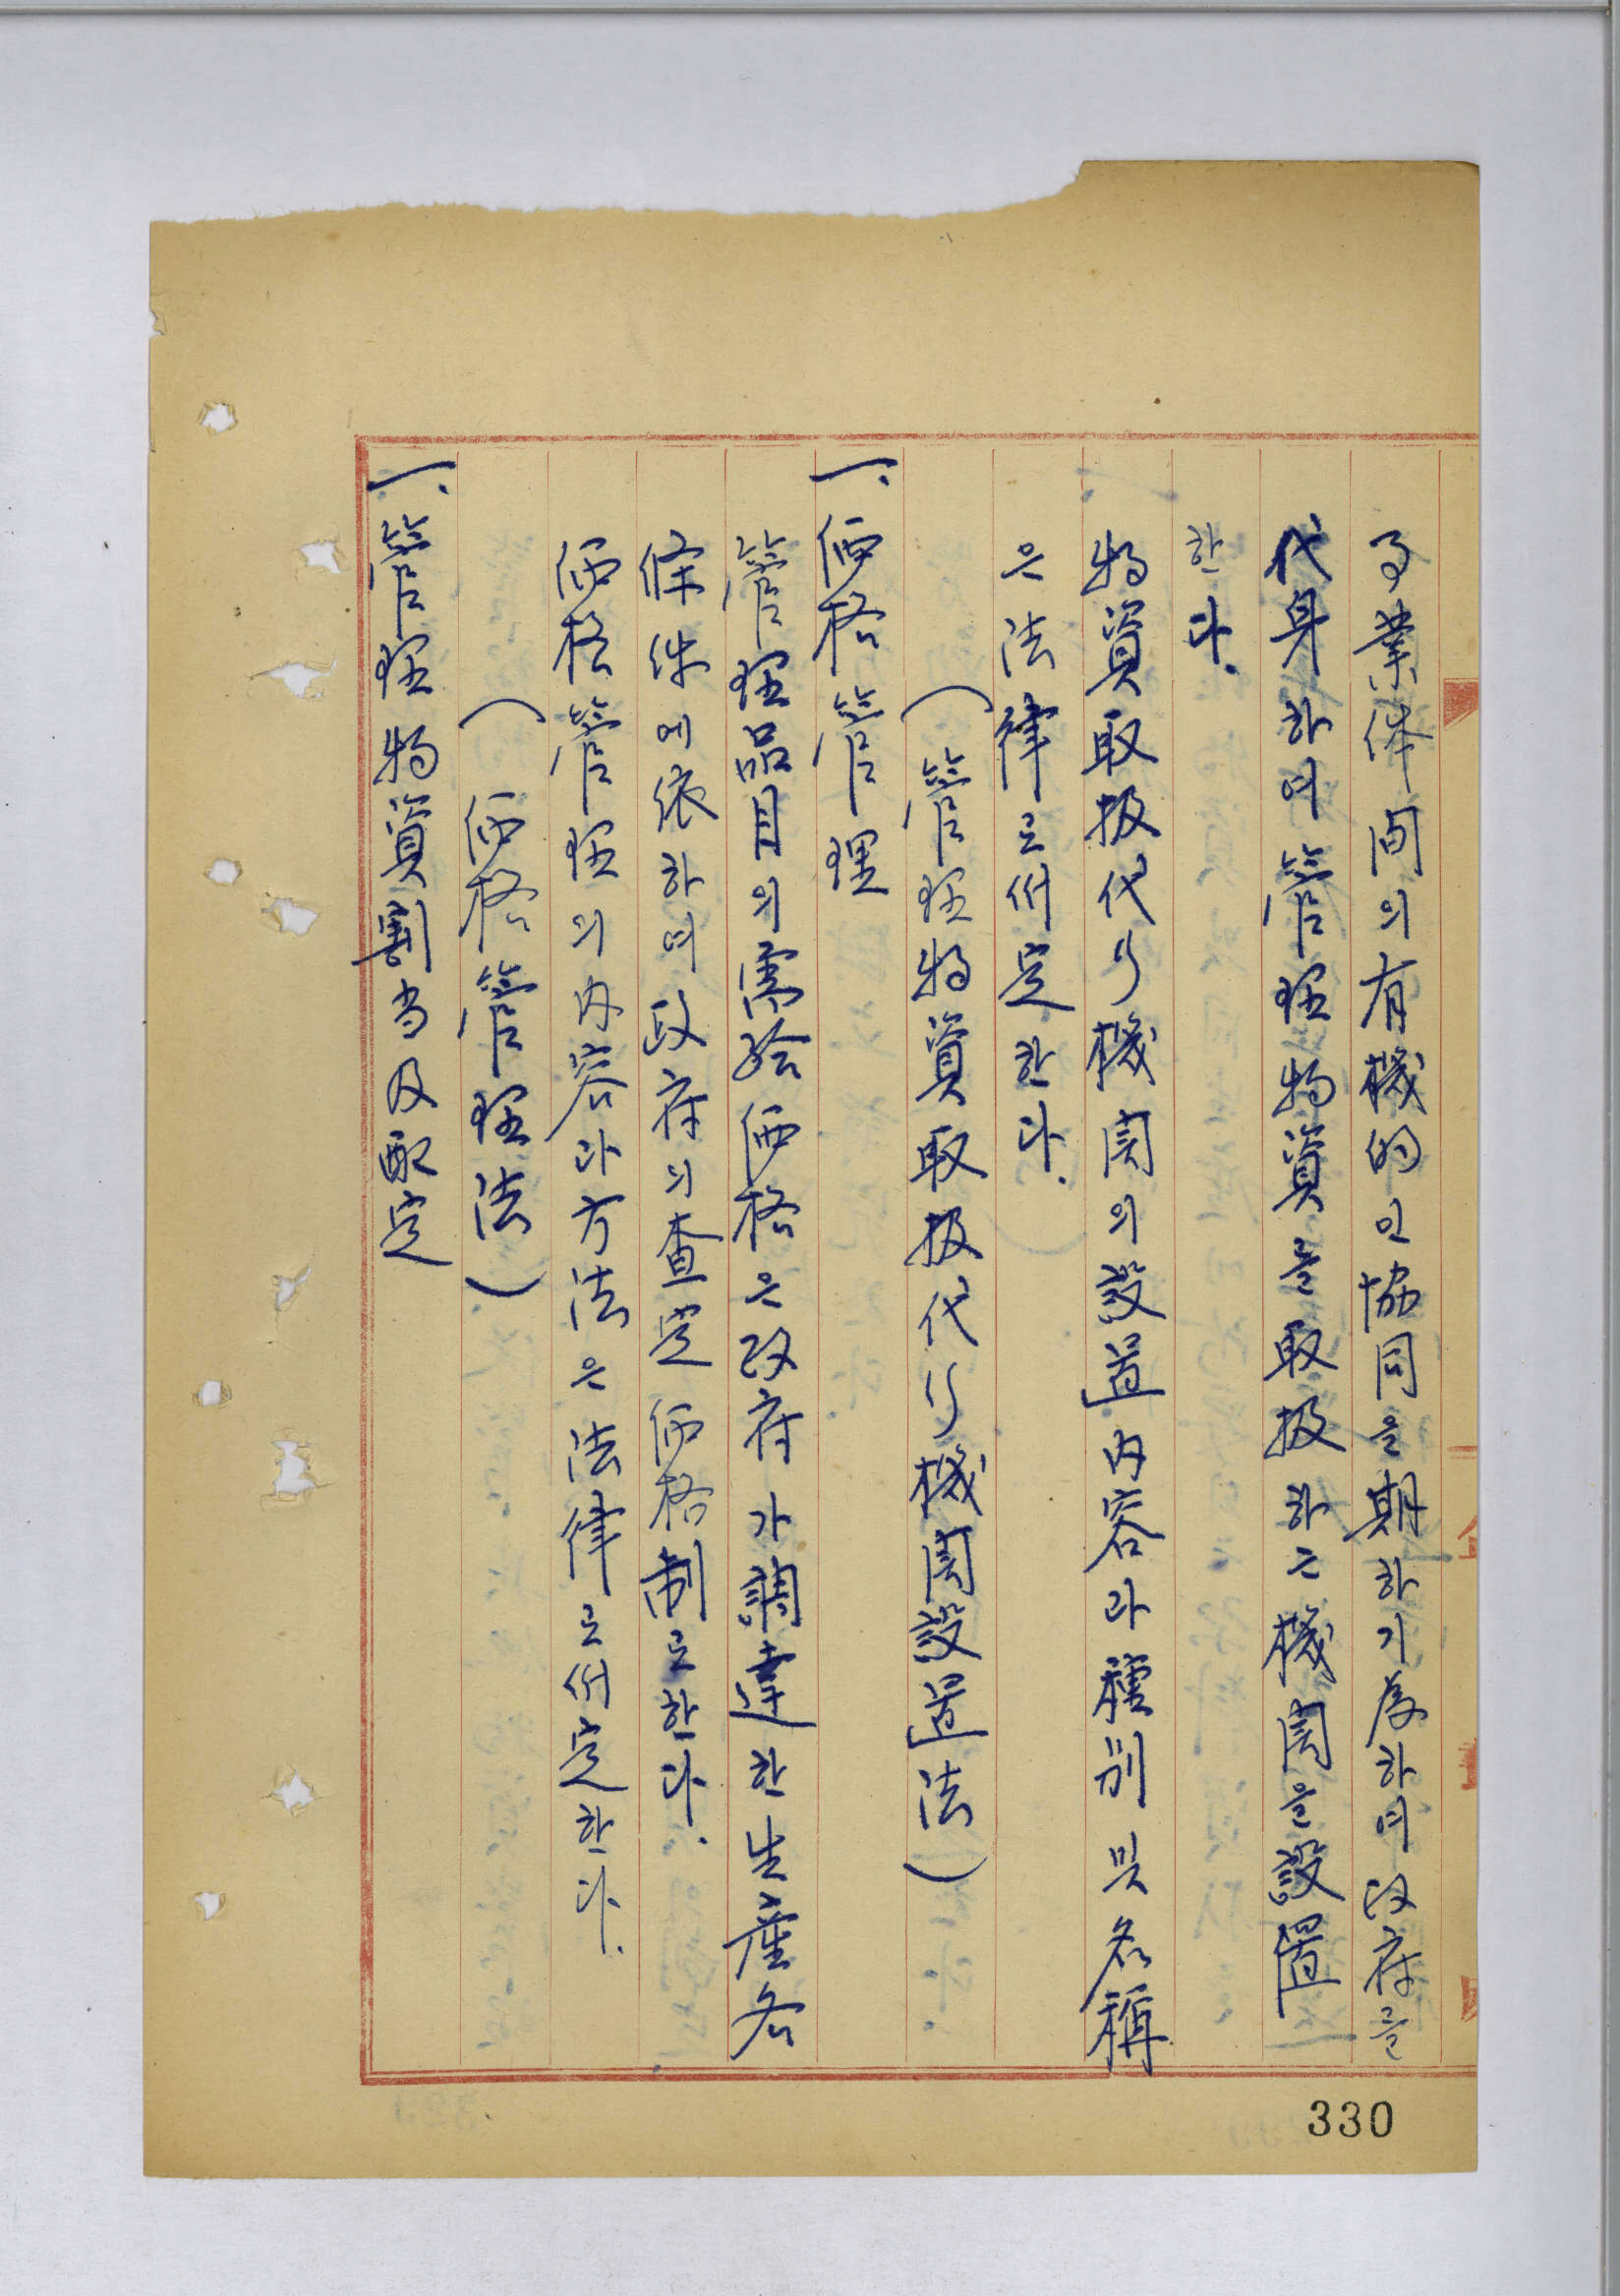 事業体間의有機的인協同을期하기爲하여政府를
代身하여管理物資를取扱하는機関을設置
한다.
物資取扱代行機関의設置内容과種別및名稱
은法律로서定한다.
(管理物資取扱代行機関設置法)
一. 価格管理
管理品目의需給価格은政府가調達한生産各
條件에依하여政府의査定価格制로한다.
価格管理의内容과方法은法律로서定한다.
(価格管理法)
一. 管理物資割当及配定
330